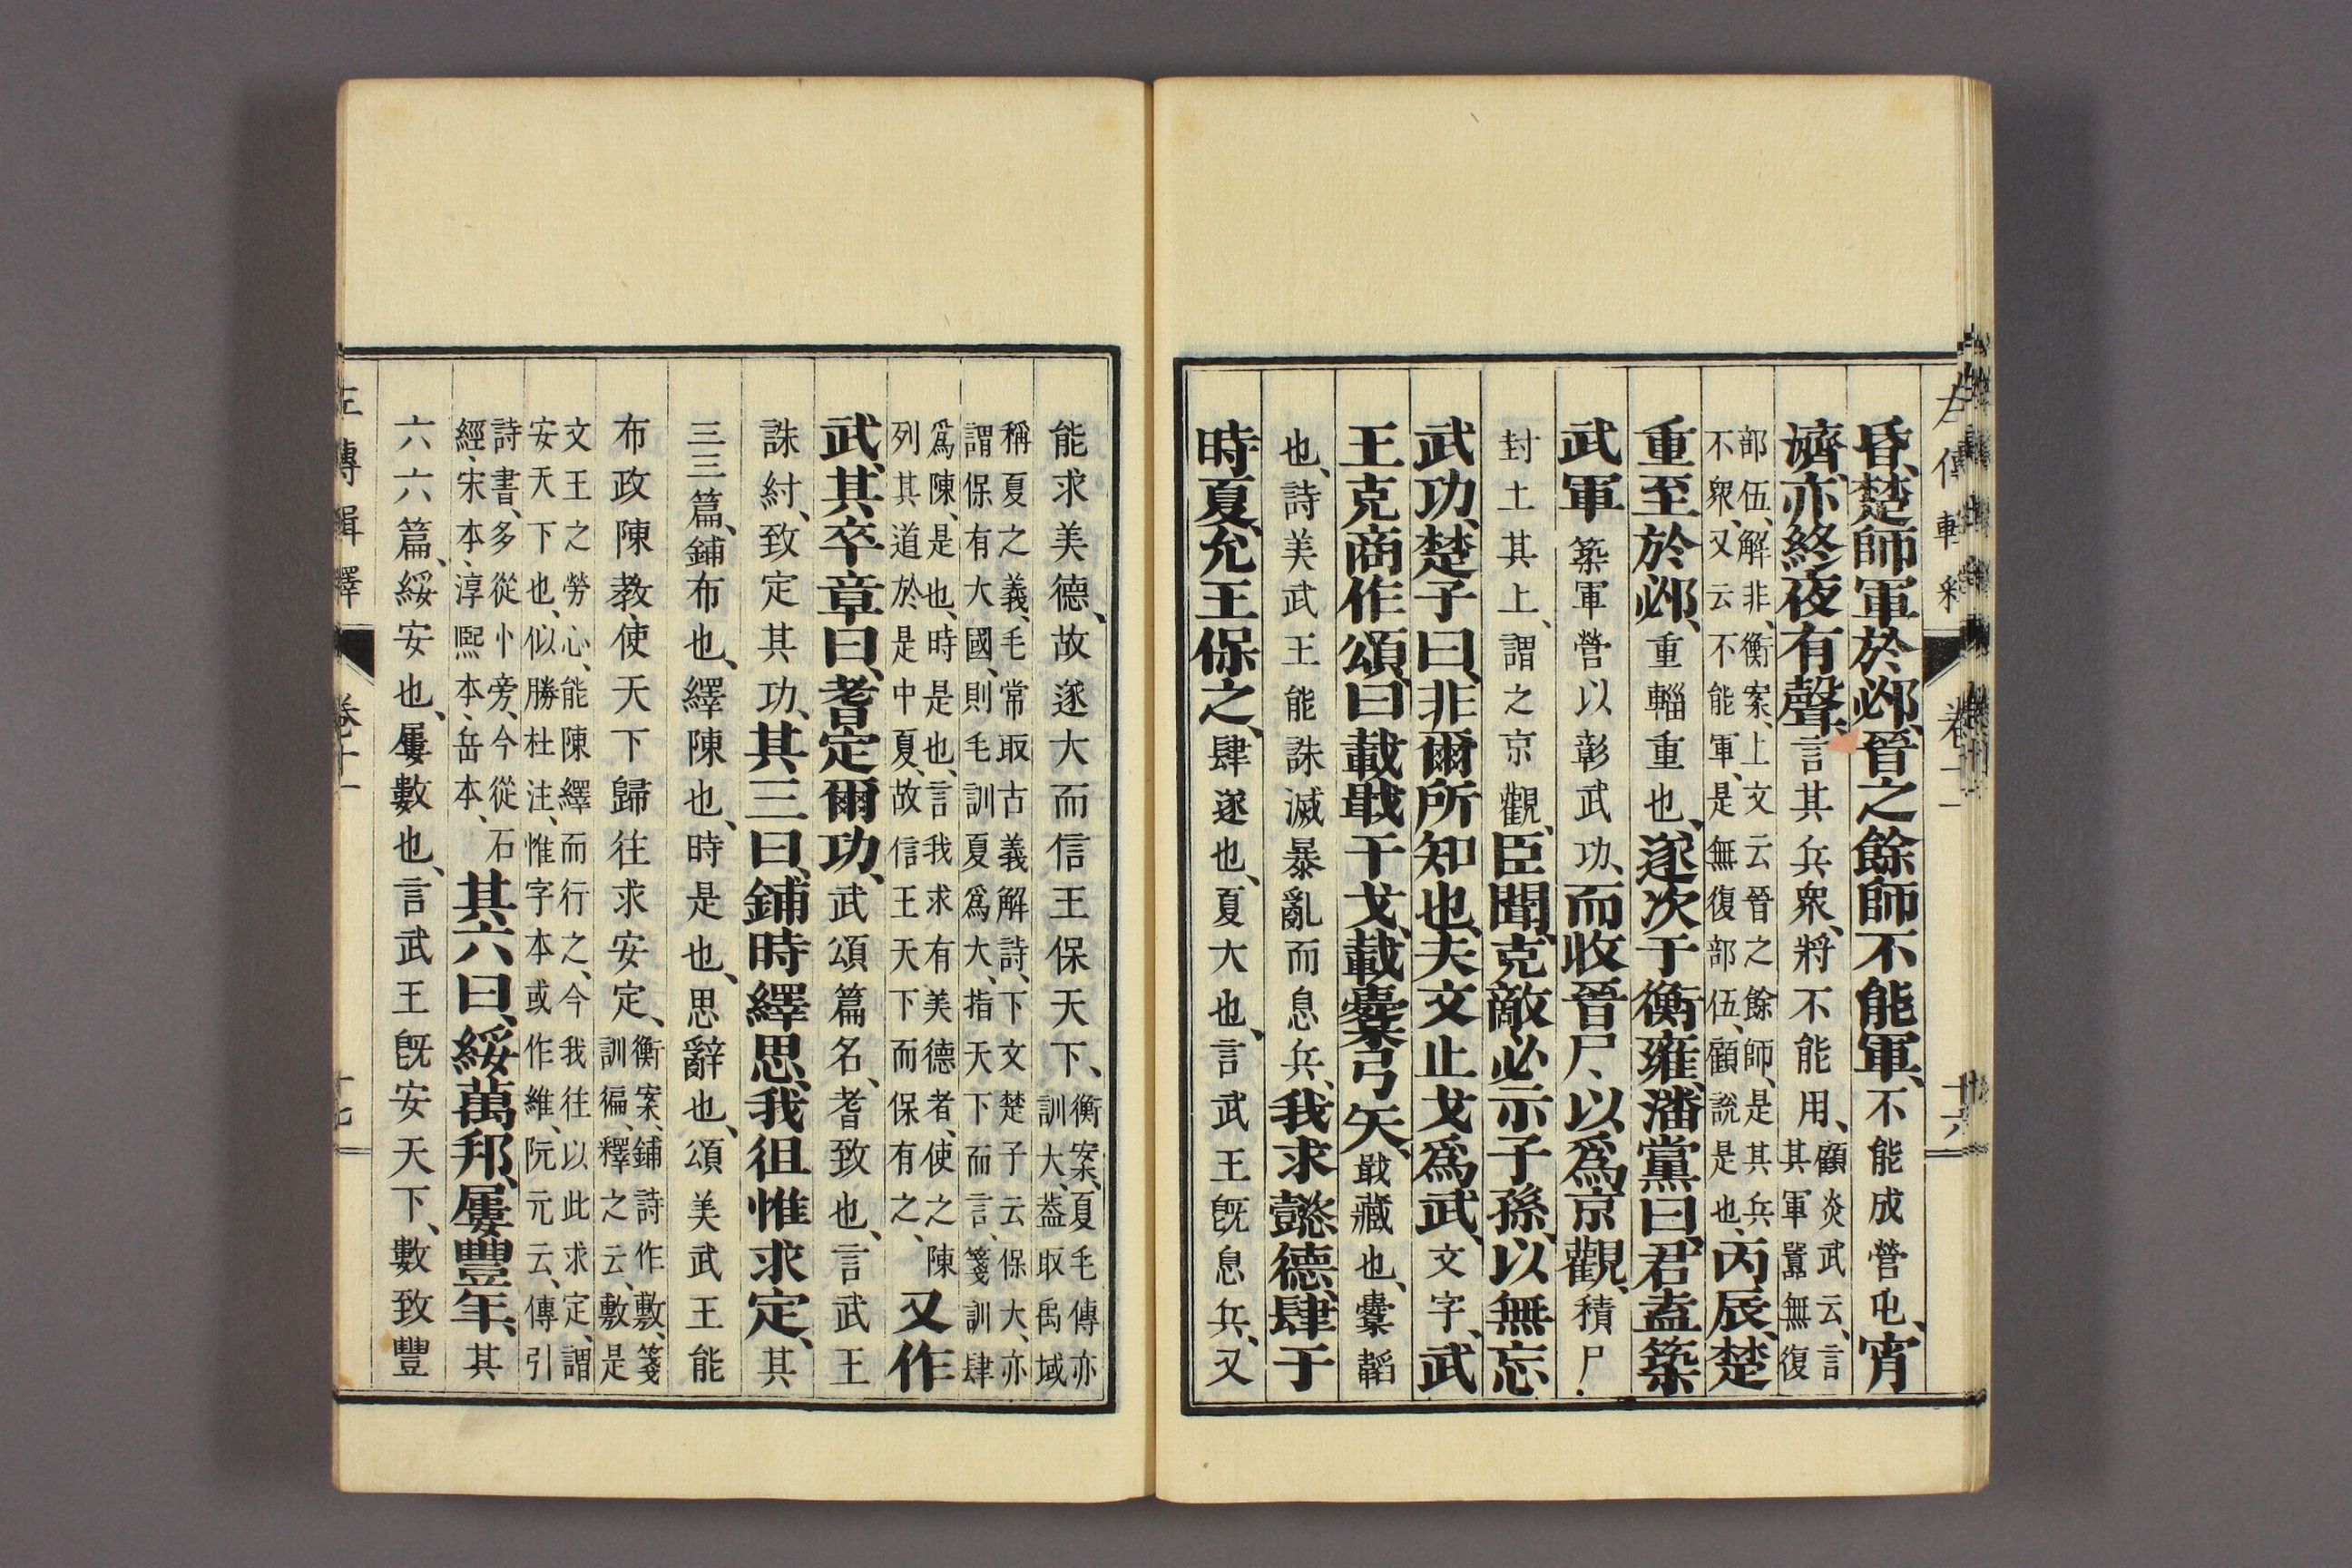 昏、楚師軍於邲、晉之餘師不能軍、不能成營屯、宵
濟、亦終夜有聲、言其兵衆、將不能用、顧炎武云、言其軍嚣無復
部伍、解非、衡案、上文云晉之餘師、是其兵不衆、又云不能軍、是無復部伍、顧說是也、丙辰、楚
重至於邲、重輜重也、遂次于衡雍、潘黨曰、君盍築
武軍築軍營以彰武功、而收晉尸、以爲京觀、積尸
封土其上、謂之京觀、臣聞、克敵必示子孫、以無忘
武功、楚子曰、非爾所知也、夫文止戈爲武、文字、武
王克商作頌、曰載戢干戈、載櫜弓矢、戢藏也、櫜韜
也、詩美武王能誅滅暴亂而息兵、我求懿德、肆于
時夏、允王保之、肆遂也、夏大也、言武王旣息兵、又
左傳輯釋 卷十一 十六
能求美德、故遂大而信王保天下、衡案、夏毛傳亦訓大、蓋取禹域
稱夏之義、毛常取古義解詩、下文楚子云保大、亦謂保有大國、則毛訓夏爲大、指天下而言、箋訓肆
爲陳、是也、時是也、言我求有美德者、使之陳列其道於是中夏、故信王天下而保有之、又作
武、其卒章曰、耆定爾功、武頌篇名、耆致也、言武王
誅紂、致定其功、其三曰、鋪時繹思、我徂惟求定、其
三三篇、鋪布也、繹陳也、時是也、思辭也、頌美武王能
布政陳教、使天下歸往求安定、衡案、鋪詩作敷、箋訓徧、釋之云、敷是
文王之勞心、能陳繹而行之、今我往以此求定、謂安天下也、似勝杜注、惟字本或作維、阮元云、傳引
詩書、多從忄旁、今從石經、宋本、淳熙本、岳本、其六曰、綏萬邦、屢豐年、其
六六篇、綏安也、屢數也、言武王旣安天下、數致豐
左傳輯釋 卷十一 十七